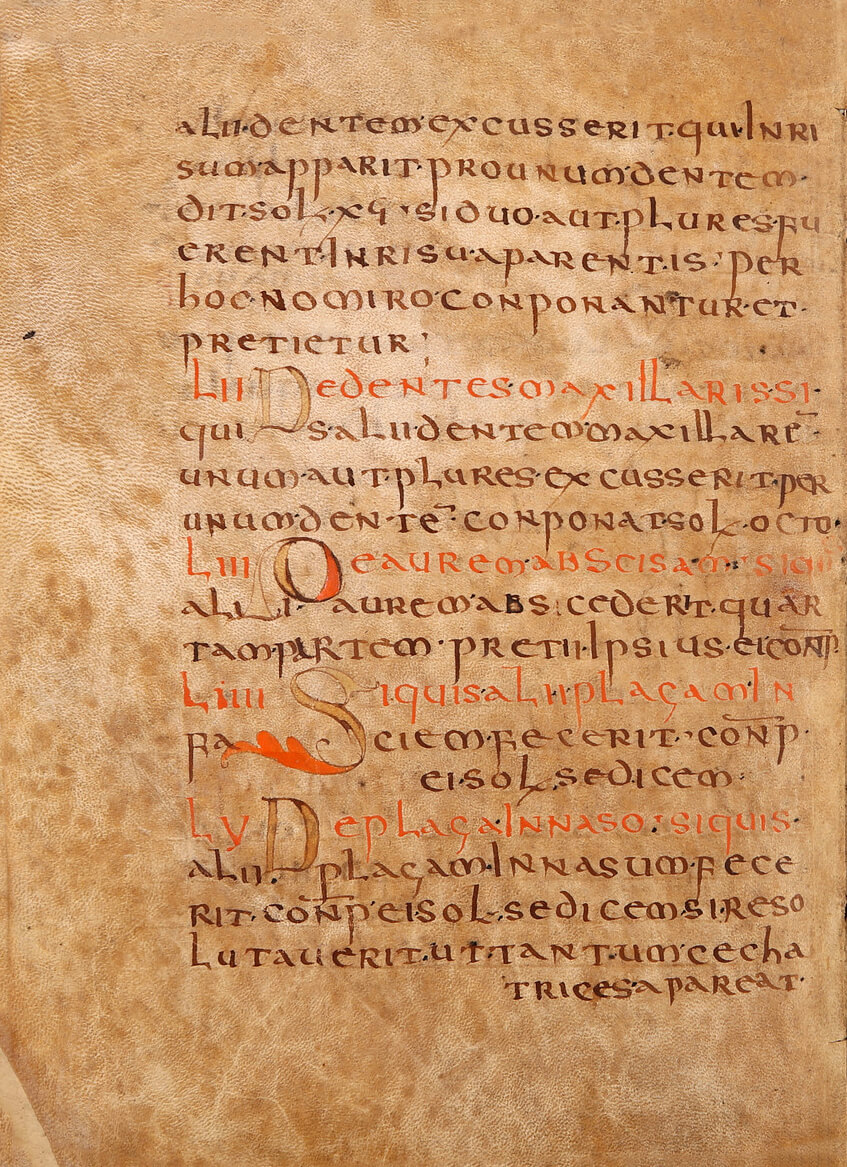 alii·dentem·excusserit·qui·In ri
sum·apparit·pro unum·dentem·
dit·sol·xγ·si duo·aut·plures·fu
erent·In risu·aparent·is·per
hoc·nomiro·conponantur·et·
pretietur;
Lii De dentes·maxillaris·si·
quis·alii·dentem·maxillarē·
unum·aut·plures·excusserit·per
unum·dentē·conponat·sol·octo·
Liii De aurem·abscisam·siqui
alii·aurem·abscederit·quar
tam·partem·pretii·Ipsius·ei·cōnp
Liiii Si quis·alii·plagam·In
faciem·fecerit·cōnp·
ei·sol·sedicem·
Lv De plaga·In naso·si quis·
alii·plagam·In nasum·fece
rit·cōnp·ei·sol·sedicem·si·reso
lutaverit·ut·tantum·cecha
trices·apareat·